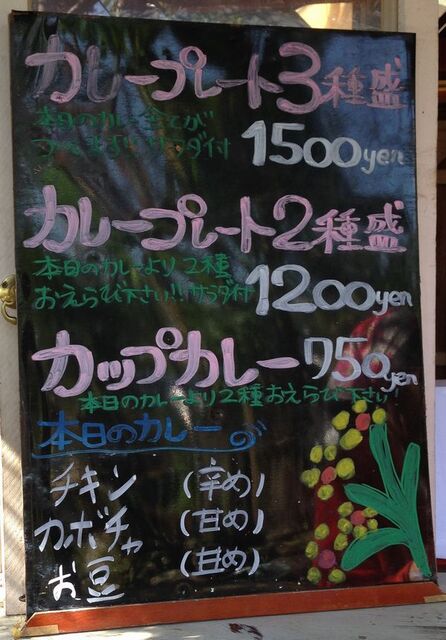 カレープレート3種盛
本日のカレー全てが
つきます!!サラダ付
1500yen
カレープレート2種盛
本日のカレーより2種
おえらび下さい!!サラダ付
1200yen
カップカレー 750yen
本日のカレーより2種おえらび下さい!
本日のカレー
チキン (辛め)
カボチャ (甘め)
お豆 (甘め)